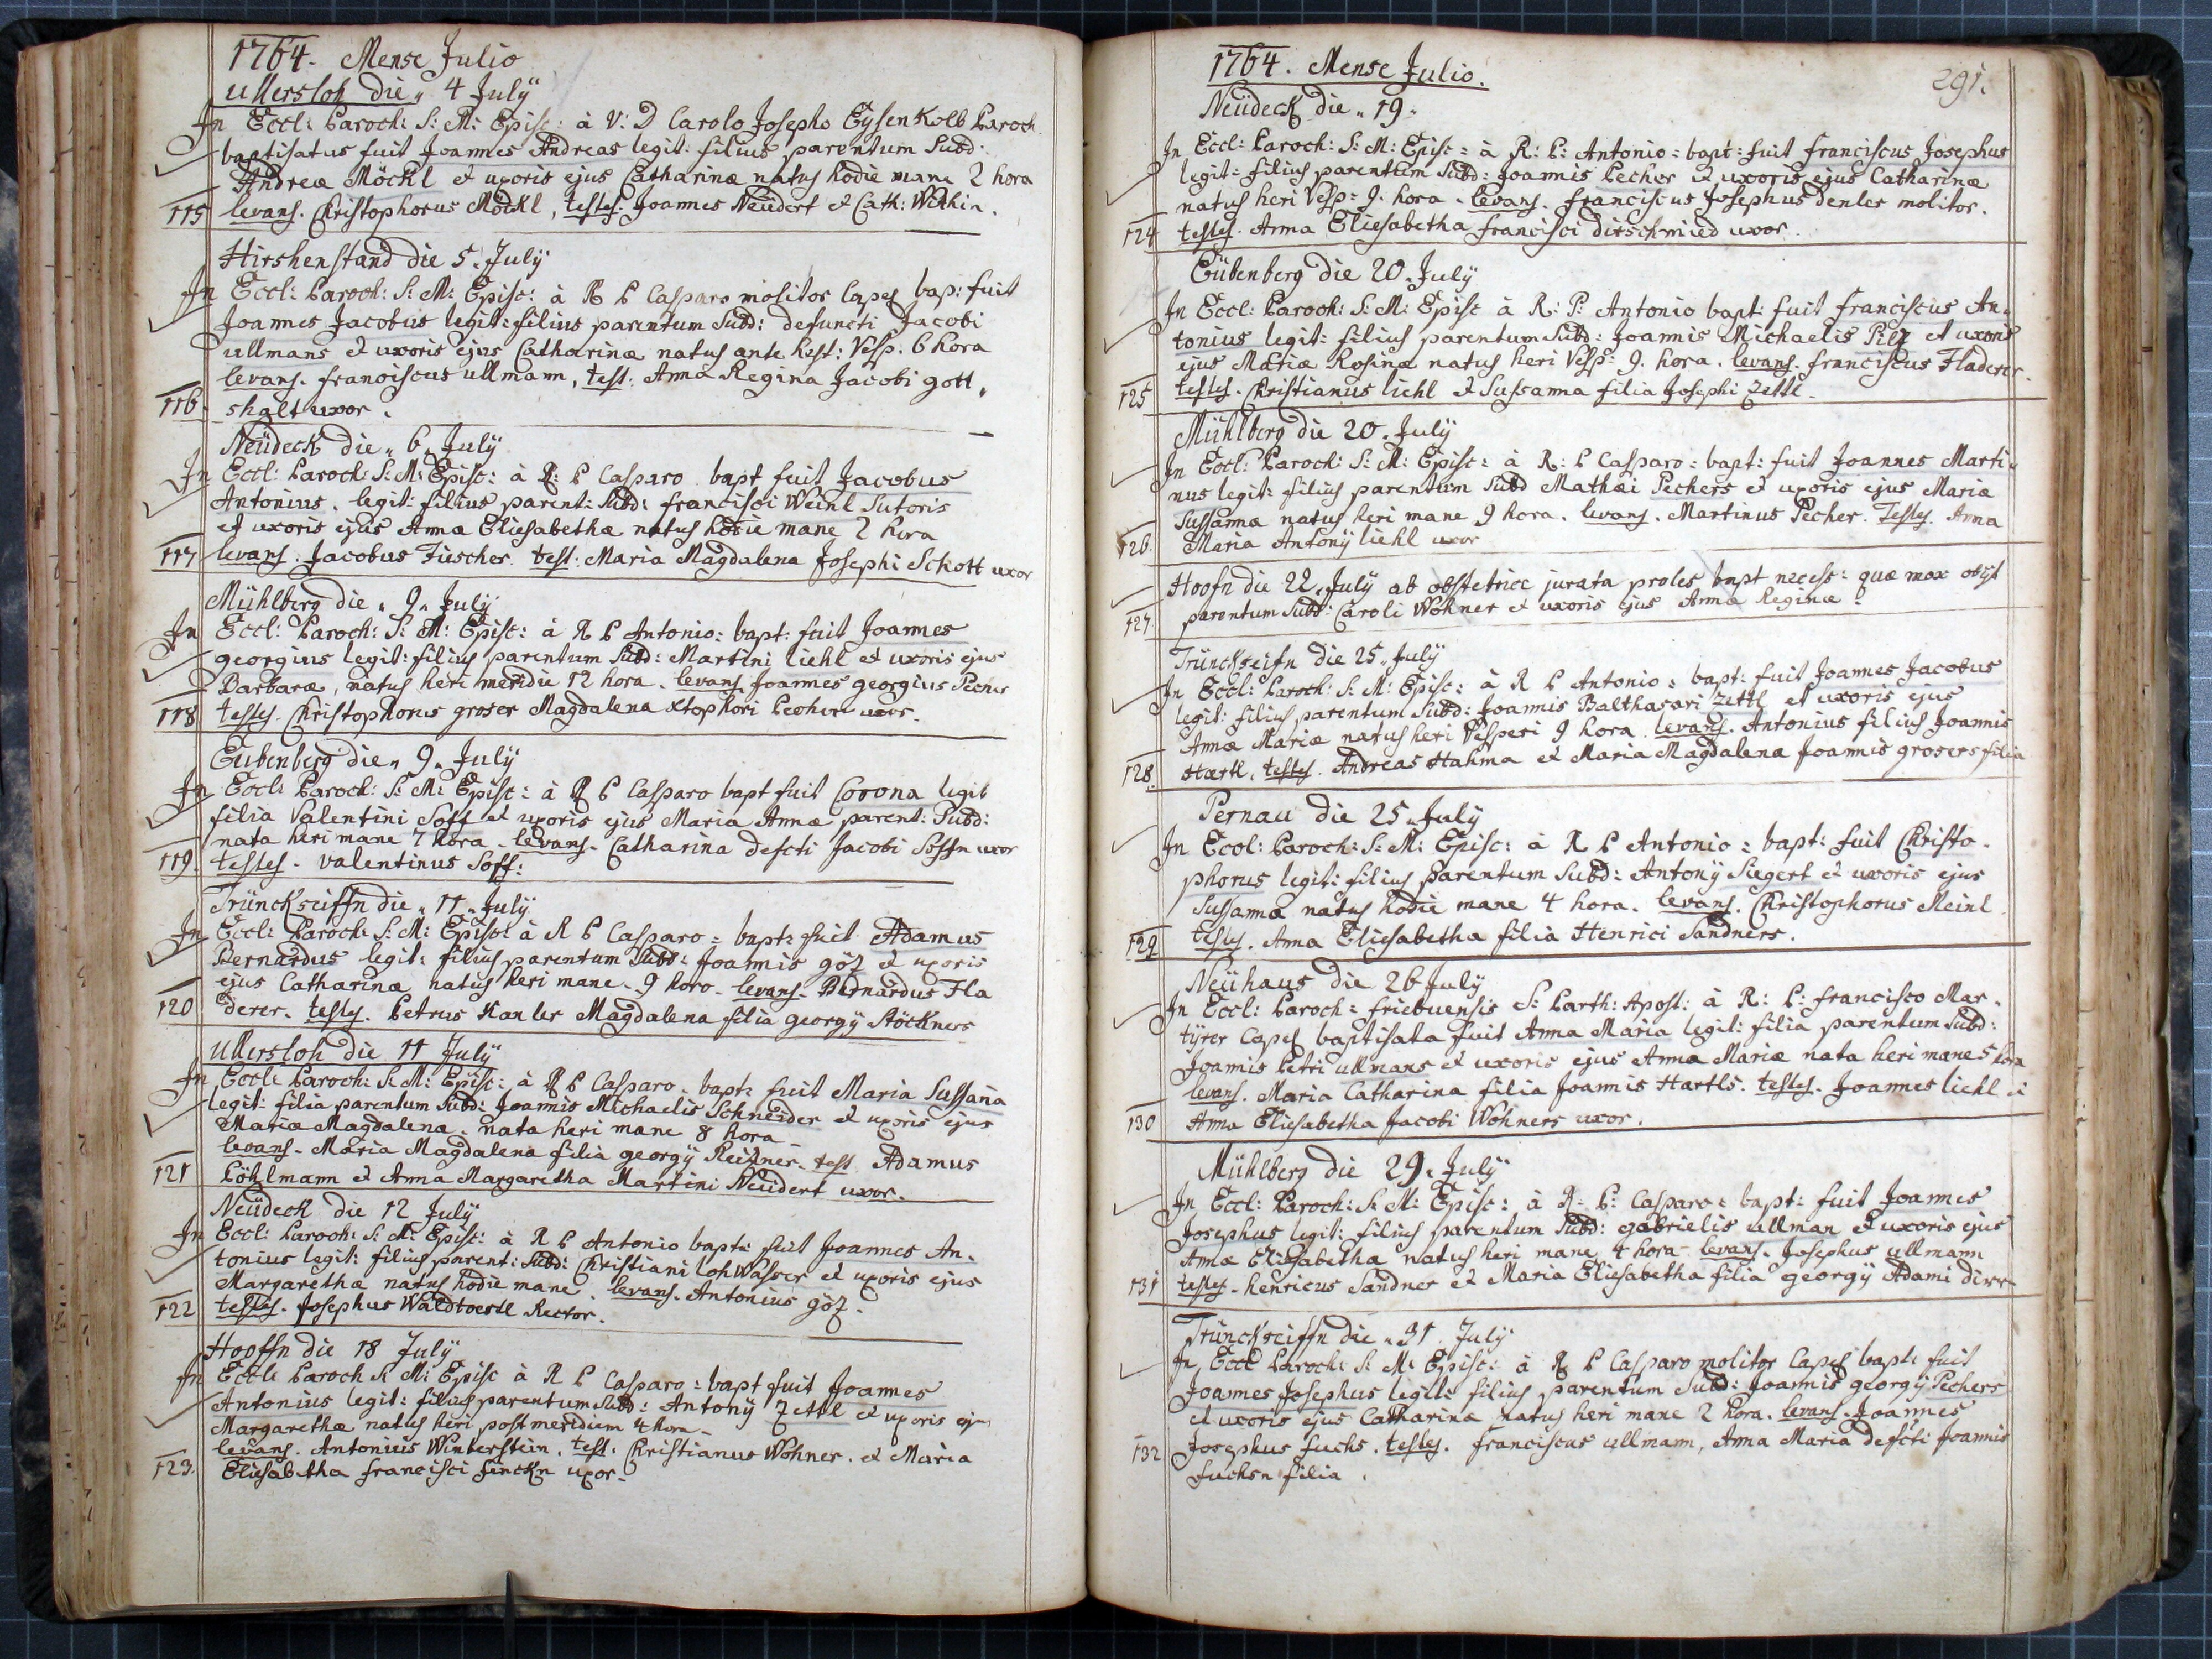 1764. Mense Julio
Ullersloh die 4 Julÿ
In Eccl: Paroch: S: M: Episc: à V: D Carolo Josepho Eysenkolb Paroch
baptisatus fuit Joannes Andreas legit: filius parentum Subd:
Andreæ Möckl et uxoris ejus Catharinæ natus hodie mane 2 hora
115 levans. Christophorus Möckl, testes. Joannes Neudert et Cath:
Hirshenstand die 5. Julÿ
In Eccl: Paroch: S: M: Episc: à R P Casparo molitor Capes bap: fuit
Joannes Jacobus legit: filius parentum Subd: defuncti Jacobi
ullmans et uxoris ejus Catharinæ natus ante hest: Vesp. 6 hora
levans. franciscus ullmann, test: Anna Regina Jacobi gott„
116. shalt uxor.
Neüdeck die „ 6 „ Julÿ
In Eccl: Paroch: S: M: Episc: à R: P Casparo bapt fuit Jacobus
Antonius. legit: filius parent: Subd: francisci Weinl Sutoris
et uxoris ejus Annæ Eliesabethæ natus hodie mane 2 hora
117 levans. Jacobus Fiescher. test. Maria Magdalena Josephi Schott uxor
Mühlberg die „ 9 „ Julÿ
In Eccl: Paroch: S: M: Episc: à R P Antonio: bapt: fuit Joannes
georgius legit: filius parentum Subd: Martini liehl et uxoris ejus
Barbaræ, natus heri meridie 12 hora. levans. Joannes georgius Pecher
118 testes. Christophorus groser Magdalena Xtophori Pecher uxor.
Eubenberg die „ 9 „ Julÿ
In Eccl: Paroch: S: M: Episc: à R P Casparo bapt fuit Corona legit
filia Valentini Soff et uxoris ejus Maria Annæ parent: Subd:
nata heri mane 7 hora. levans. Catharina defcti Jacobi Soffn uxor
119. testes. valentinus Soff:
Trünckseiffn die „ 11 „ Julÿ
In Eccl: Paroch: S: M: Episc: à R P Casparo: bapt: fuit Adamus
Bernardus legit: filius parentum Subd: Joannis göz et uxoris
ejus Catharinæ natus heri mane. 9 horo. levans. Bernardus Fla
120 derer. testes. Petrus Kanler Magdalena filia georgÿ Stöckners
Ullersloh die 11 Julÿ
In Eccl: Paroch: S: M: Episc: à R P Casparo. bapt: fuit Maria Sussana
legit: filia parentum Subd: Joannis Michaelis Schneider et uxoris ejus
Mariæ Magdalena. nata heri mane 8 hora.
levans. Maria Magdalena filia georgÿ Reihner. test Adamus
121 Pöhlmann et Anna Margaretha Martini Neüdert uxor.
Neüdeck die 12 Julÿ
In Eccl: Paroch: S: M: Episc: à R P Antonio bapt: fuit Joannes An.
tonius legit: filius parent: Subd: Christiani lohWasser et uxoris ejus
Margarethæ natus hodie mane. levans. Antonius göz.
122 testes. Josephus Waldtoestl Rector.
Hooffn die 18 Julÿ
In Eccl: Paroch S: M: Episc à R P Casparo: bapt fuit Joannes
Antonius legit: filius parentum Subd: Antonÿ Zettl et uxoris ejus
Margarethæ natus heri post meridiem 4 hora.
levans. Antonius Winterstein. test. Christianus Wohner. et Maria
123. Eliesabetha francisci finckn uxor.
1764. Mense Julio. 291.
Neüdeck die „ 19.
In Eccl: Paroch: S: M: Episc: à R: P: Antonio: bapt: fuit franciscus Josephus
legit: filius parentum Subd: Joannis Pecher et uxoris ejus Catharinæ
natus heri Vesp: 9. hora. levans. franciscus Josephus denler molitor.
124 testes. Anna Eliesabetha francisci dirschmied uxor.
Eübenberg die 20. Julÿ
In Eccl: Paroch: S: M: Episc à R: P: Antonio bapt: fuit franciscus An„
tonius legit: filius parentum Subd: Joannis Michaelis Pilz et uxoris
ejus Mariæ Rosinæ natus heri Vesp: 9. hora. levans. franciscus Fladerer.
125 testes. Christianus liehl et Sussanna filia Josephi Zettl.
Mühlberg die 20. Julÿ
In Eccl: Paroch: S: M: Episc: à R: P Casparo: bapt: fuit Joannes Marti„
nus legit: filius parentum Subd Mathæi Pechers et uxoris ejus Mariæ
Sussanna natus heri mane 9 hora. levans. Martinus Pecher. Testes. Anna
126. Maria Antonÿ liehl uxor
Hoofn die 22. Julÿ ab obstetrice jurata proles bapt necess: quæ mox obÿt
127. parentum Subd: Caroli Wohner et uxoris ejus Annæ Reginæ
Trünckseifn die 25. Julÿ
In Eccl: Paroch: S: M: Episc: à R P Antonio: bapt: fuit Joannes Jacobus
legit: filius parentum Subd: Joannis Balthasari Zettl et uxoris ejus
Annæ Mariæ natus heri Vesperi 9 hora. levans. Antonius filius Joannis
128. Hærtl, testes. Andreas Hahma et Maria Magdalena Joannis grosers filia
Pernau die 25. Julÿ
In Eccl: Paroch: S: M: Episc: à R P Antonio: bapt: fuit Christo.
phorus legit: filius parentum Subd: Antonÿ Siegert et uxoris ejus
Sussanna natus hodie mane 4 hora. levans. Christophorus Meinl
129 testes. Anna Eliesabetha filia Henrici Sandners.
Neühaus die 26 Julÿ
In Eccl: Paroch: friebuensis S: Barth: Apost: à R: P: francisco Mar.
tÿrer Capes baptisata fuit Anna Maria legit: filia parentum Subd:
Joannis Petri ullmans et uxoris ejus Annæ Mariæ nata heri mane 5 hora
levans. Maria Catharina filia Joannis Hartls. testes. Joannes liehl et
130 Anna Eliesabetha Jacobi Wohners uxor.
Mühlberg die 29. Julÿ
In Eccl: Paroch: S: M: Episc: à R: P: Casparo: bapt: fuit Joannes
Josephus legit: filius parentum Subd: gabrielis ullman et uxoris ejus
Annæ Eliesabetha natus heri mane 4 hora. levans. Josephus ullmann
131 testes. henricus Sandner et Maria Eliesabetha filia georgÿ Adami dirr
Trünckseiffn die „ 31 Julÿ
In Eccl Paroch: S: M: Episc: à R P Casparo molitor Capes bapt: fuit
Joannes Josephus legit: filius parentum Subd: Joannis georgÿ Pechers
et uxoris ejus Catharinæ natus heri mane 2 hora. levans. Joannes
132 Josephus fuchs. testes. franciscus ullmann, Anna Maria defcti Joannis
fuchsn filia.